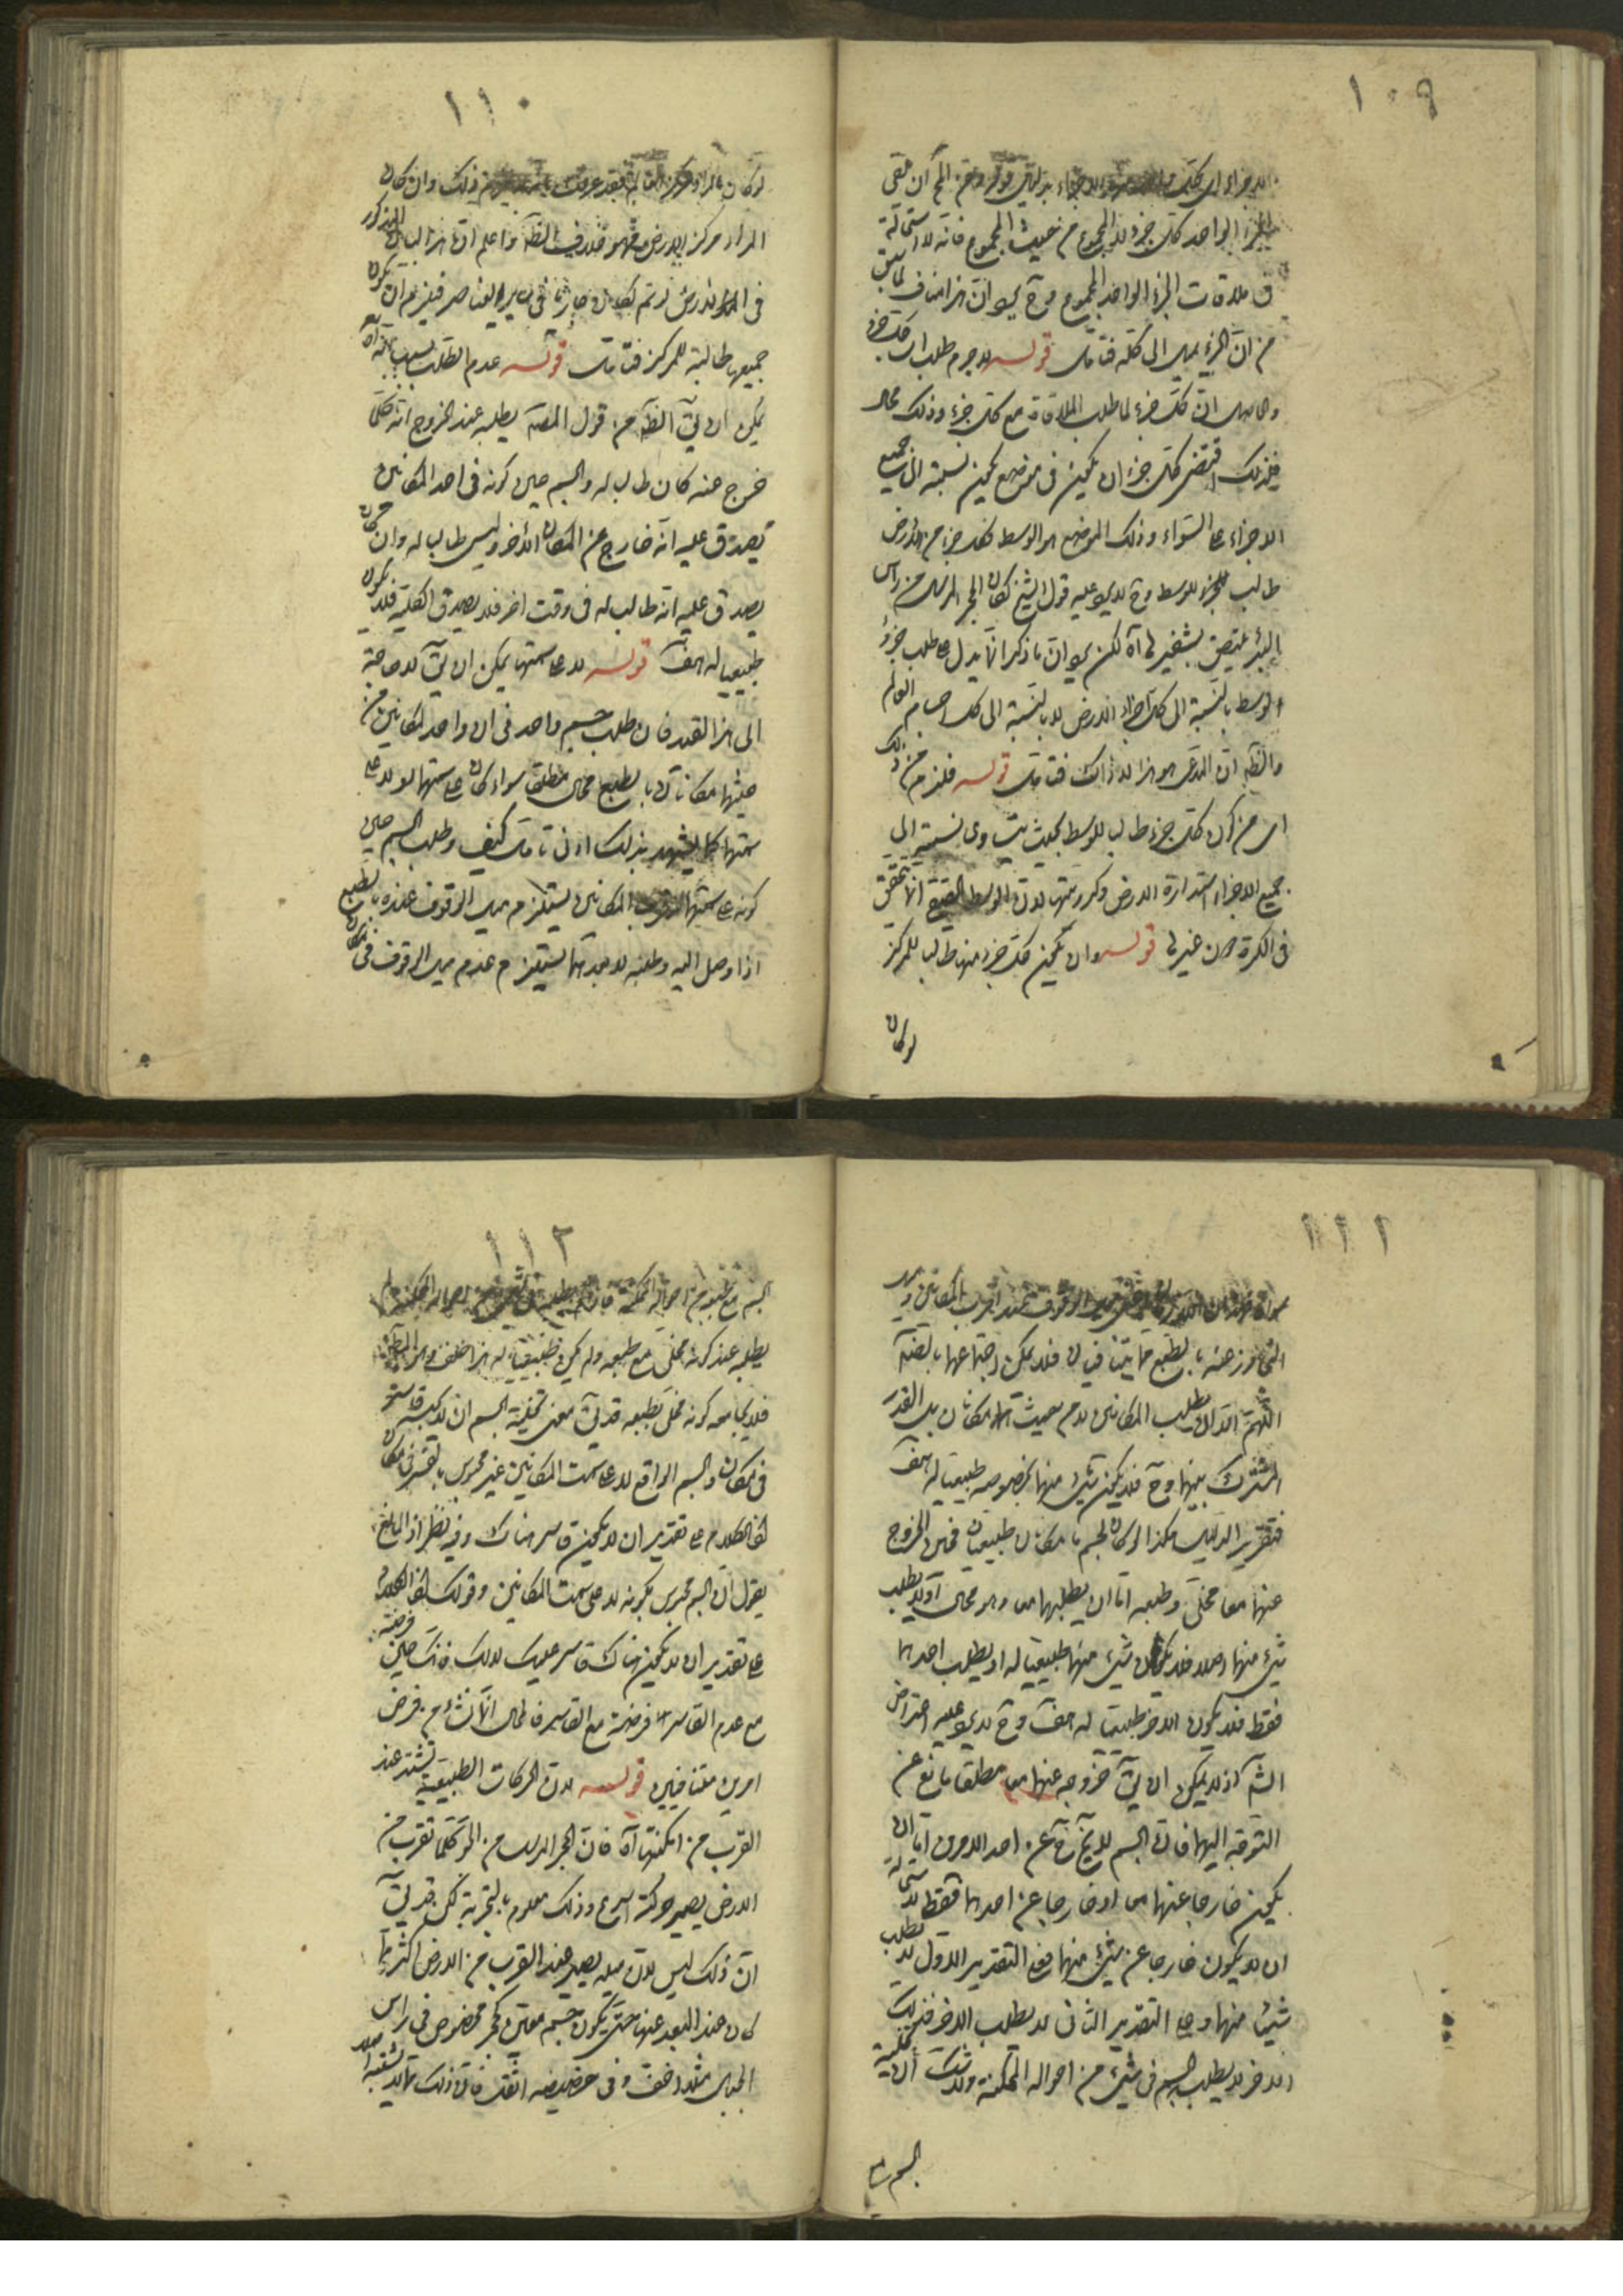 ١٠٩
الاجزاء اى كل بدليل قوله ومن المح ان يلقى
الجزء الواحد كل جزء لا المجموع من حيث المجموع فانه لا استحالة
فى ملاقات الجزء الواحد المجموع وح يرد ان هذا مناف لما سبق
من ان الجزء يميل الى كله فتامل قوله لا جرم طلب اى كل جزء
وحاصله ان كل جزء لما طلب الملاقات مع كل جزء وذلك محال
فلذلك اقتضى كل جزء ان يكون فى موضع يكون نسبته الى جميع
الاجزاء على السواء وذلك الموضع هو الوسط فكل جزء من الارض
طالب للوسط وح لا يرد عليه قول الشيخ لكان الحجر المرسل من راس
البئر يلتصق بشفيرها آه لكن يرد ان ما ذكر انما يدل على طلب جزء
الوسط بالنسبة الى كل اجزاء الارض لا بالنسبة الى كل اجسام العالم
والظ ان المدعى هو هذا لا ذاك فتامل قوله فلزم من ذلك
اى من كون كل جزء طالبا للوسط بحيث يتساوى نسبته الى
جميع الاجزاء استدارة الارض وكرويتها لان الوسط انما يتحقق
فى الكرة دون غيرها قوله وان يكون كل جزء منها طالبا للمركز
لو كان
١١٠
لو كان المراد مركز العالم فقد عرفت ذلك وان كان
المراد مركز الارض فهو خلاف الظ واعلم ان هذا البيان المذكور
فى الارض لو تم لكان جاريا فى سائر العناصر فيلزم ان يكون
جميعها طالبة للمركز فتامل قوله عدم الطلب بسبب انه آه
يمكن ان يق الظ من قول المص يطلبه عند الخروج انه كلما
خرج عنه كان طالبا له والجسم حين كونه فى احد المكانين
يصدق عليه انه خارج عن المكان الاخر وليس طالبا له وان كان
يصدق عليه انه طالب له فى وقت اخر فلا يصدق الكلية فلا يكون
طبيعيا له هف قوله لا على سمتهما يمكن ان يق لا حاجة
الى هذا القيد فان طلب جسم واحد فى ان واحد لمكانين من
حيث هما مكانان بالطبع محال مطلقا سواء كان على سمتهما او لا على
سمتهما كما يشهد بذلك ادنى تامل كيف وطلب الجسم حين
كونه على سمتهما المكانين يستلزم ميل الوقوف عنده بالطبع
اذا وصل اليه وطلبه لابعدهما يستلزم عدم ميل الوقوف فى المكان
١١١
الوقوف عند اقرب المكانين وميل
التجاوز عنه بالطبع متنافيان فلا يمكن اجتماعهما بالضرورة
اللهم الا ان يطلب المكانين لا من حيث هما مكانان بل القدر
المشترك بينهما وح فلا يكون شىء منهما بخصوصه طبيعيا له هف
فتقرير الدليل هكذا لو كان لجسم ما مكانان طبيعيان فحين الخروج
عنهما معا مخلى وطبعه اما ان يطلبهما معا وهو محال او لا يطلب
شىء منهما اصلا فلا يكون شىء منهما طبيعيا له او يطلب احدهما
فقط فلا يكون الاخر طبيعيا له هف وح لا يرد عليه اعتراض
الش اذ لا يمكن ان يق خروجه عنهما معا مطلقا مانع عن
التوجه اليهما فان الجسم لا يخ ح عن احد الامرين اما ان
يكون خارجا عنهما معا او خارجا عن احدهما فقط لاستحالة
ان لا يكون خارجا عن شىء منهما فعلى التقدير الاول لا يطلب
شيئا منهما وعلى التقدير الثانى لا يطلب الاخر فذلك
الاخر لا يطلبه الجسم فى شىء من احواله الممكنة ولا شك ان تخلية
الجسم مع
١١٢
الجسم مع طبعه من احواله الممكنة
يطلبه عند كونه مخلى مع طبعه ولم يكن طبيعيا له هذا خلف
فلا يجامعه كونه مخلى بطبعه قد يق معنى تخلية الجسم ان لا يكسبه قاسر
فى مكان والجسم الواقع لا على سمت المكانين غير محبوس بالقسر فى مكان
لان الكلام على تقدير ان لا يكون قاسر هناك وفيه نظر اذ المانع
يقول ان الجسم محبوس بكونه لا على سمت المكانين وقولك لان الكلام
على تقدير ان لا يكون هناك قاسر عليك لا لك فانك حين فرضته
مع عدم القاسر فرضته مع القاسر فالمحال انما نشأ من فرض
امرين متنافيين قوله لان الحركات الطبيعية تشتد عند
القرب من امكنتها آه فان الحجر المرسل من الجو كلما تقرب من
الارض يصير حركته اسرع وذلك معلوم بالتجربة لكن قد يق
ان ذلك ليس لان ميله يصير عند القرب من الارض اكثر مما
كان عند البعد عنها حتى يكون جسم معين كحجر مخصوص فى راس
الجبل مثلا اخف وفى حضيضه اثقل فان ذلك مما لا يشتبه اصلا